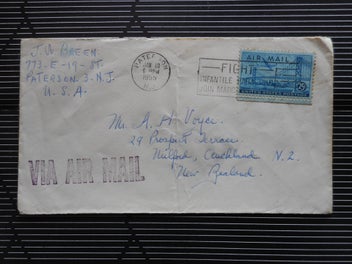 J. W. BREEN.
773-E-19-ST.
PATERSON 3-N.J.
U.S.A.
PATERSON
JAN 18
1955
N.J.
FIGHT
INFANTILE PARALYSIS
JOIN MARCH
AIR MAIL
25¢
UNITED STATES
Mr. A. H. Voyce.
29 Prospect Terrace
Milford, Auckland N.Z.
New Zealand.
VIA AIR MAIL